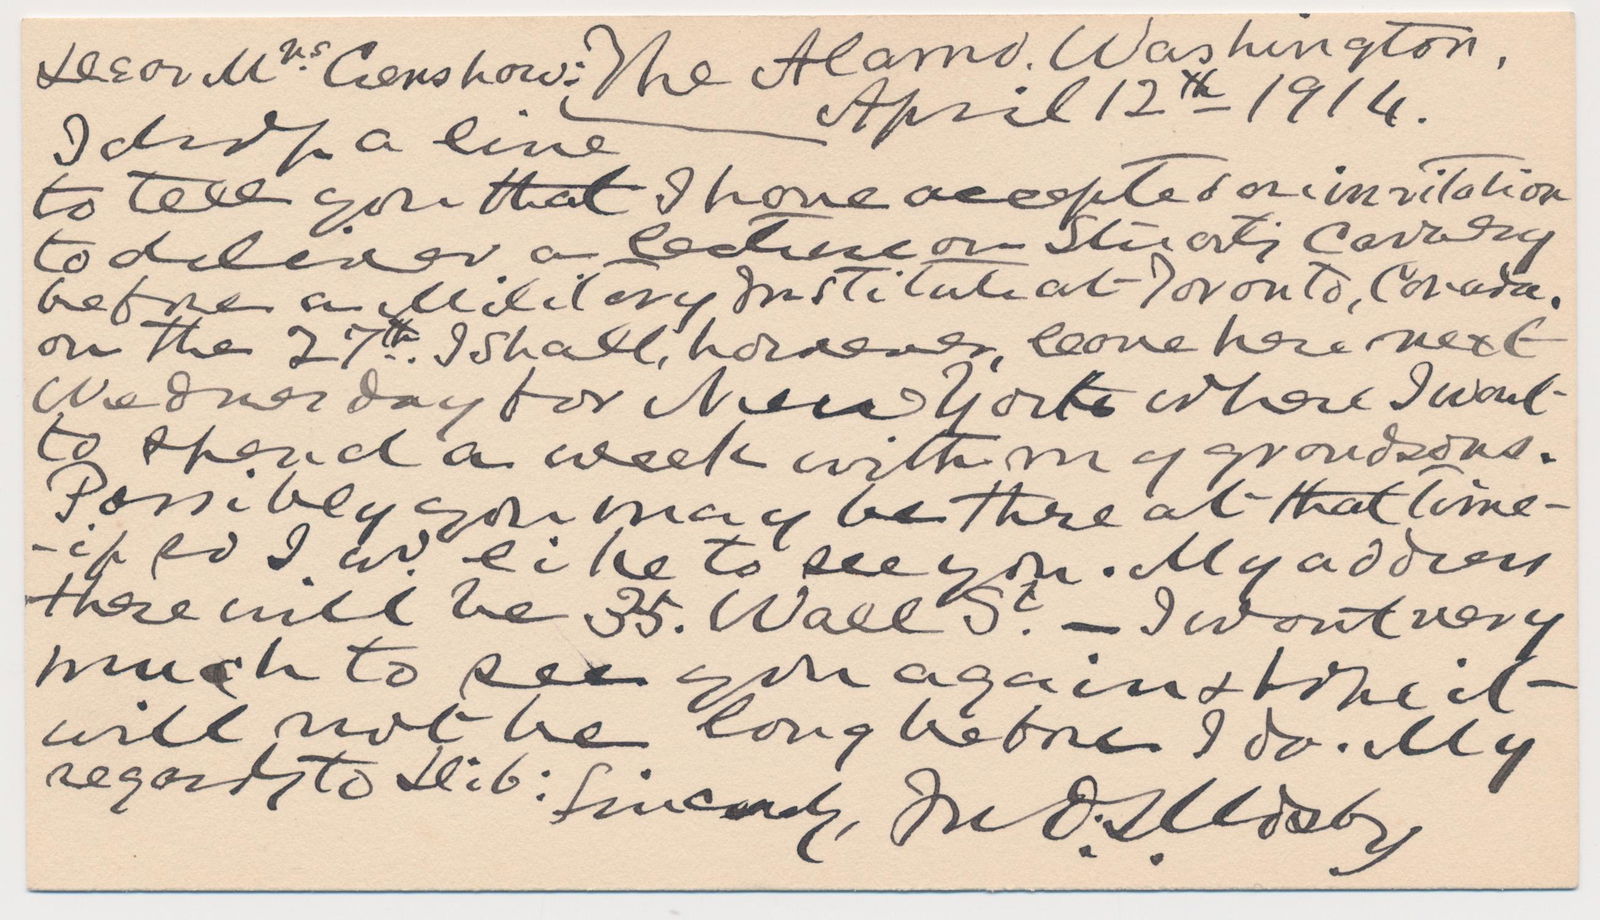 Dear Mrs. Censhow: The Alamo. Washington,
April 12th 1914.
I drop a line
to tell you that I have accepted an invitation
to deliver a lecture on Stuart's Cavalry
before a Military Institute at Toronto, Canada.
on the 27th. I shall, however, leave here next
Wednesday for New York where I want
to spend a week with my grandsons.
Possibly you may be there at that time -
- if so I wd. like to see you. My address
there will be 35. Wall St. — I want very
much to see you again & hope it
will not be long before I do. My
regards to Hib: Sincerely, Jno. S. Mosby